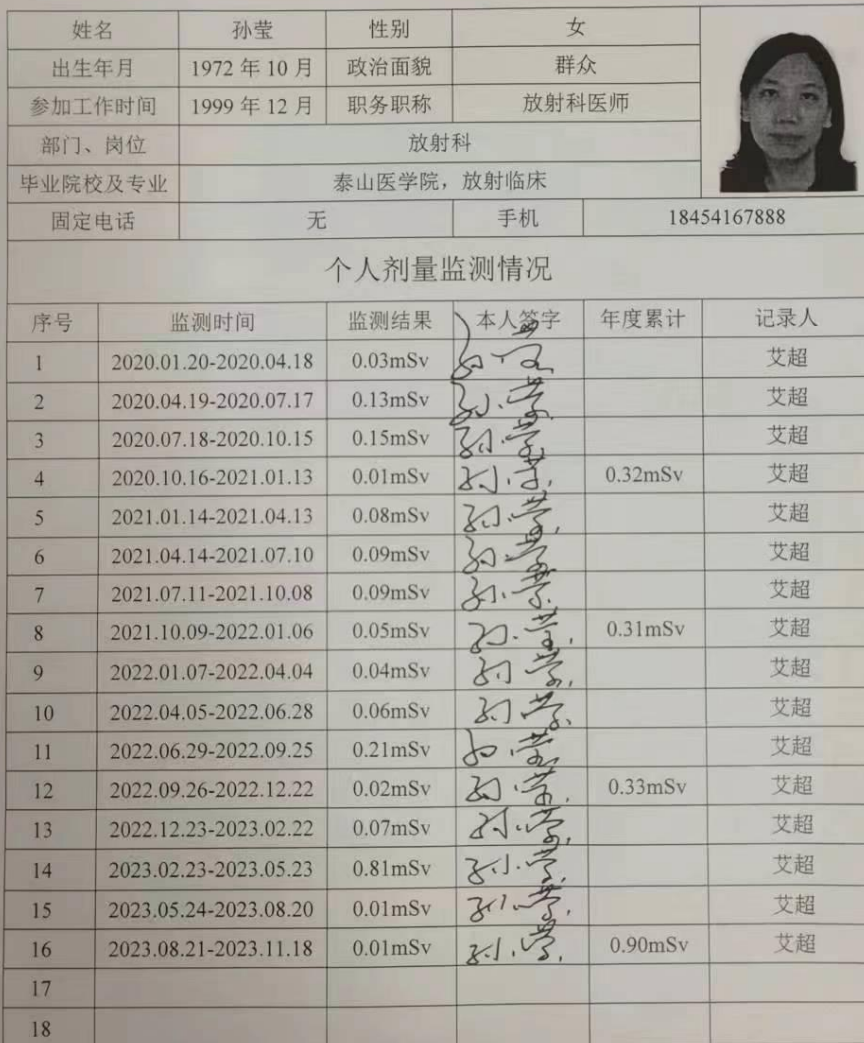 姓名 孙莹 性别 女
出生年月 1972年10月 政治面貌 群众
参加工作时间 1999年12月 职务职称 放射科医师
部门、岗位 放射科
毕业院校及专业 泰山医学院，放射临床
固定电话 无 手机 18454167888
个人剂量监测情况
序号 监测时间 监测结果 本人签字 年度累计 记录人
1 2020.01.20-2020.04.18 0.03mSv 孙莹 艾超
2 2020.04.19-2020.07.17 0.13mSv 孙莹 艾超
3 2020.07.18-2020.10.15 0.15mSv 孙莹 艾超
4 2020.10.16-2021.01.13 0.01mSv 孙莹 0.32mSv 艾超
5 2021.01.14-2021.04.13 0.08mSv 孙莹 艾超
6 2021.04.14-2021.07.10 0.09mSv 孙莹 艾超
7 2021.07.11-2021.10.08 0.09mSv 孙莹 艾超
8 2021.10.09-2022.01.06 0.05mSv 孙莹 0.31mSv 艾超
9 2022.01.07-2022.04.04 0.04mSv 孙莹 艾超
10 2022.04.05-2022.06.28 0.06mSv 孙莹 艾超
11 2022.06.29-2022.09.25 0.21mSv 孙莹 艾超
12 2022.09.26-2022.12.22 0.02mSv 孙莹 0.33mSv 艾超
13 2022.12.23-2023.02.22 0.07mSv 孙莹 艾超
14 2023.02.23-2023.05.23 0.81mSv 孙莹 艾超
15 2023.05.24-2023.08.20 0.01mSv 孙莹 艾超
16 2023.08.21-2023.11.18 0.01mSv 孙莹 0.90mSv 艾超
17
18